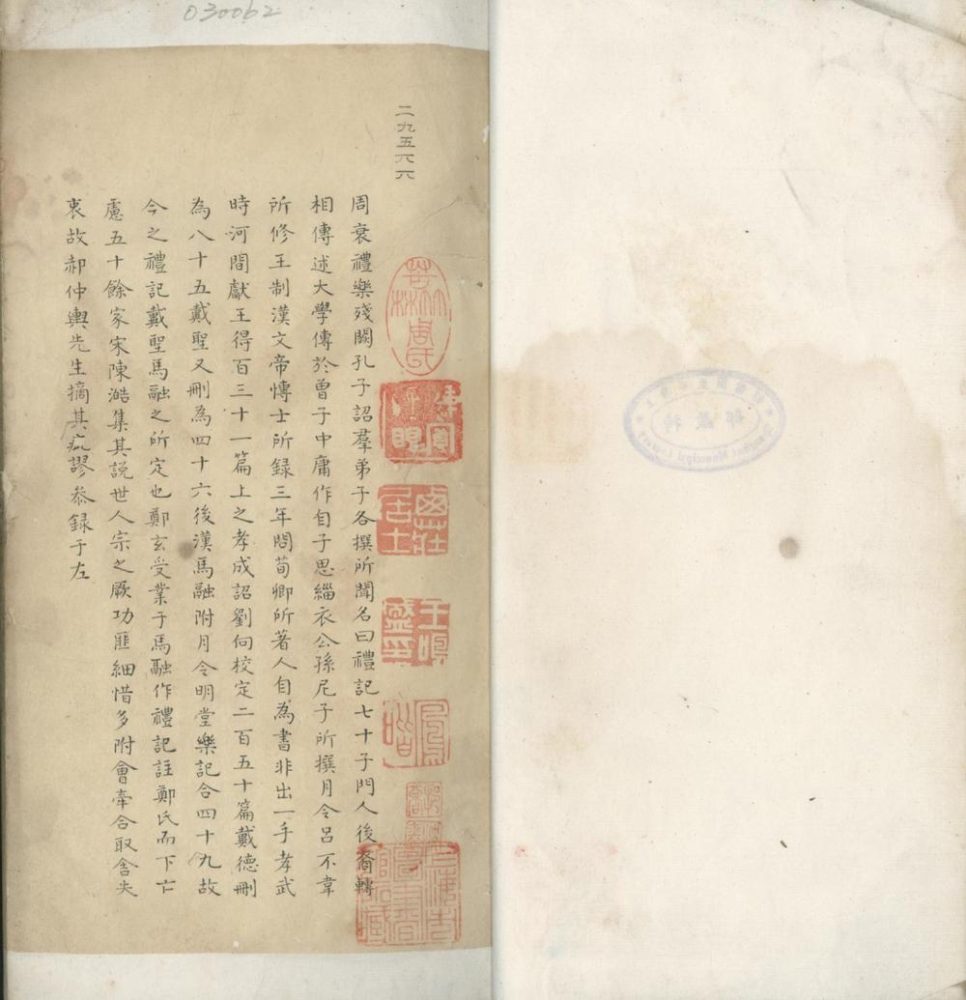 030062
二九五六六
周衰禮樂殘闕孔子詔羣弟子各撰所聞名曰禮記七十子門人後裔轉
相傳述大學傳於曾子中庸作自子思緇衣公孫尼子所撰月令呂不韋
所修王制漢文帝愽士所録三年問荀卿所著人自為書非出一手孝武
時河間獻王得百三十一篇上之孝成詔劉向校定二百五十篇戴德刪
為八十五戴聖又刪為四十六後漢馬融附月令明堂樂記合四十九故
今之禮記戴聖馬融之所定也鄭玄受業于馬融作禮記註鄭氏而下亡
慮五十餘家宋陳澔集其說世人宗之厥功匪細惜多附會牽合取舍失
衷故郝仲輿先生摘其疵謬叅録于左
鹵莊居士
王鳴盛印
鳳喈